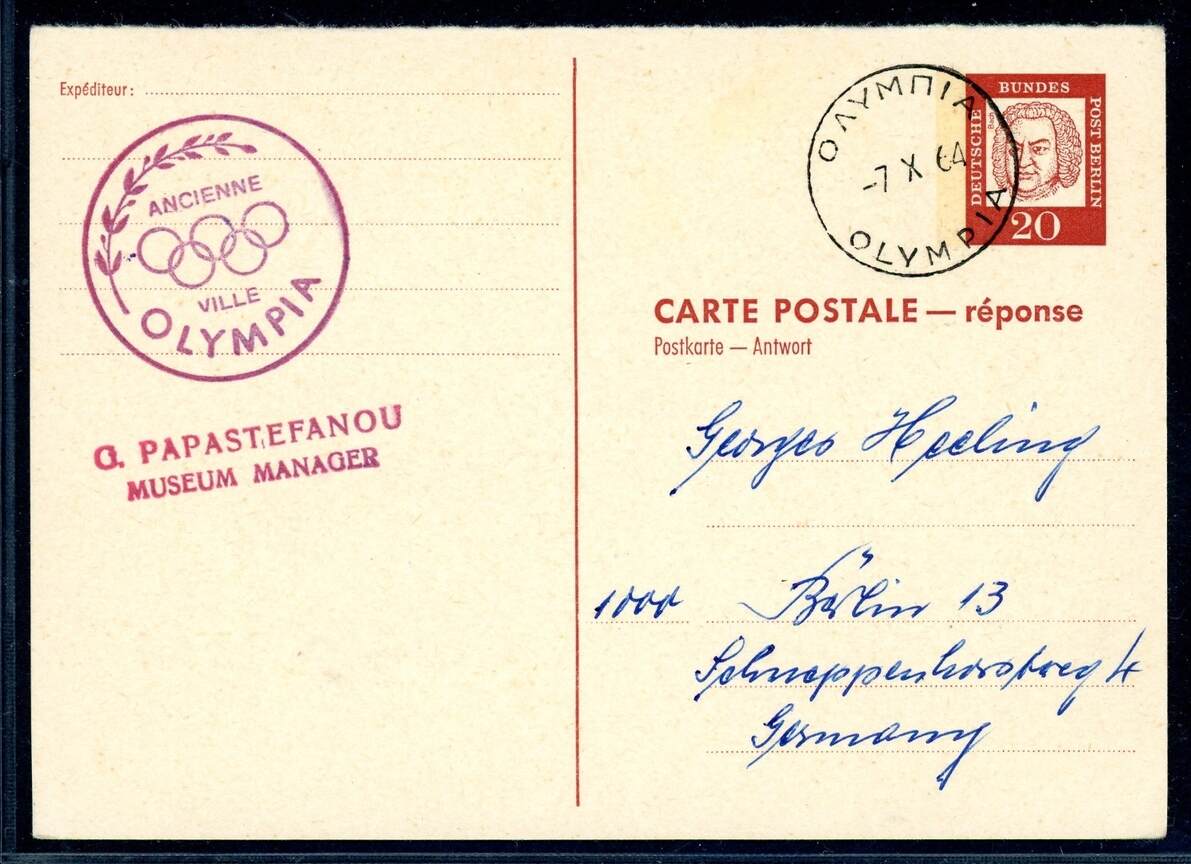 Expéditeur:
ANCIENNE
VILLE
OLYMPIA
G. PAPASTEFANOU
MUSEUM MANAGER
ΟΛΥΜΠΙΑ
-7 X 64
OLYMPIA
DEUTSCHE
BUNDES
POST BERLIN
Bach
20
CARTE POSTALE — réponse
Postkarte — Antwort
Georges Heeling
1000 Berlin 13
Schneppenhorstweg 4
Germany